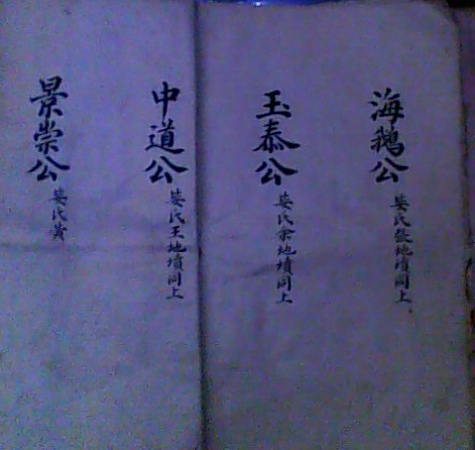 海鵝公
娶氏張地墳同上
玉泰公
娶氏余地墳同上
中道公
娶氏王地墳同上
景崇公
娶氏黃